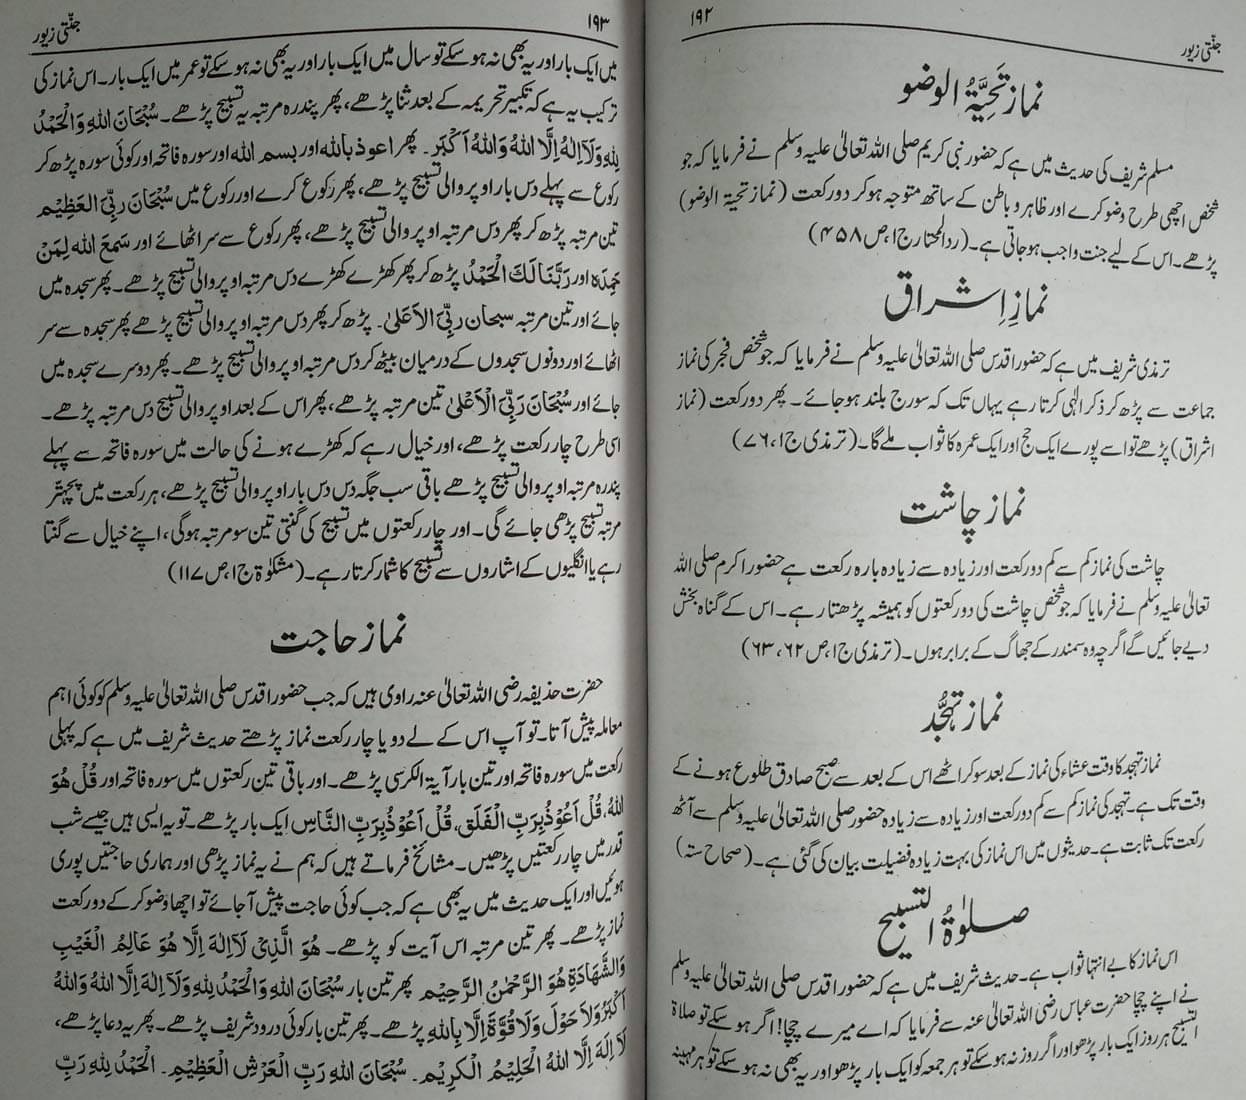 ۱۹۲
جنّتی زیور
نماز تَحِیَّۃُ الوضو
مسلم شریف کی حدیث میں ہے کہ حضور نبی کریم صلی اللہ تعالیٰ علیہ وسلم نے فرمایا کہ جو
شخص اچھی طرح وضو کرے اور ظاہر و باطن کے ساتھ متوجہ ہو کر دو رکعت (نماز تحیۃ الوضو)
پڑھے۔ اس کے لیے جنت واجب ہو جاتی ہے۔ (ردالمحتار ج۱، ص ۴۵۸)
نمازِ اِشراق
ترمذی شریف میں ہے کہ حضور اقدس صلی اللہ تعالیٰ علیہ وسلم نے فرمایا کہ جو شخص فجر کی نماز
جماعت سے پڑھ کر ذکر الٰہی کرتا رہے یہاں تک کہ سورج بلند ہو جائے۔ پھر دو رکعت (نماز
اشراق) پڑھے تو اسے پورے ایک حج اور ایک عمرہ کا ثواب ملے گا۔ (ترمذی ج۱، ۷۶)
نماز چاشت
چاشت کی نماز کم سے کم دو رکعت اور زیادہ سے زیادہ بارہ رکعت ہے حضور اکرم صلی اللہ
تعالیٰ علیہ وسلم نے فرمایا کہ جو شخص چاشت کی دو رکعتوں کو ہمیشہ پڑھتا رہے۔ اس کے گناہ بخش
دیے جائیں گے اگرچہ وہ سمندر کے جھاگ کے برابر ہوں۔ (ترمذی ج۱، ص ۶۲، ۶۳)
نماز تہجُّد
نماز تہجد کا وقت عشاء کی نماز کے بعد سو کر اٹھے اس کے بعد سے صبح صادق طلوع ہونے کے
وقت تک ہے۔ تہجد کی نماز کم سے کم دو رکعت اور زیادہ سے زیادہ حضور صلی اللہ تعالیٰ علیہ وسلم سے آٹھ
رکعت تک ثابت ہے۔ حدیثوں میں اس نماز کی بہت زیادہ فضیلت بیان کی گئی ہے۔ (صحاح ستہ)
صلوٰۃُ التسبیح
اس نماز کا بے انتہا ثواب ہے۔ حدیث شریف میں ہے کہ حضور اقدس صلی اللہ تعالیٰ علیہ وسلم
نے اپنے چچا حضرت عباس رضی اللہ تعالیٰ عنہ سے فرمایا کہ اے میرے چچا! اگر ہو سکے تو صلاۃ
التسبیح ہر روز ایک بار پڑھو اور اگر روز نہ ہو سکے تو ہر جمعہ کو ایک بار پڑھو اور یہ بھی نہ ہو سکے تو ہر مہینہ
۱۹۳
جنّتی زیور
میں ایک بار اور یہ بھی نہ ہو سکے تو سال میں ایک بار اور یہ بھی نہ ہو سکے تو عمر میں ایک بار۔ اس نماز کی
ترکیب یہ ہے کہ تکبیر تحریمہ کے بعد ثنا پڑھے، پھر پندرہ مرتبہ یہ تسبیح پڑھے۔ سُبْحَانَ اللہِ وَالْحَمْدُ
لِلہِ وَلَآ اِلٰہَ اِلَّا اللہُ وَاللہُ اَکْبَر۔ پھر اعوذ باللہ اور بسم اللہ اور سورہ فاتحہ اور کوئی سورہ پڑھ کر
رکوع سے پہلے دس بار اوپر والی تسبیح پڑھے، پھر رکوع کرے اور رکوع میں سُبْحَانَ رَبِّیَ الْعَظِیْم
تین مرتبہ پڑھ کر پھر دس مرتبہ اوپر والی تسبیح پڑھے، پھر رکوع سے سر اٹھائے اور سَمِعَ اللہ لِمَنْ
حَمِدَہ اور رَبَّنَا لَکَ الْحَمْدُ پڑھ کر پھر کھڑے کھڑے دس مرتبہ اوپر والی تسبیح پڑھے۔ پھر سجدہ میں
جائے اور تین مرتبہ سبحان ربِّیَ الاَعلیٰ۔ پڑھ کر پھر دس مرتبہ اوپر والی تسبیح پڑھے پھر سجدہ سے سر
اٹھائے اور دونوں سجدوں کے درمیان بیٹھ کر دس مرتبہ اوپر والی تسبیح پڑھے۔ پھر دوسرے سجدہ میں
جائے اور سُبْحَانَ رَبِّیَ الْاَعْلیٰ تین مرتبہ پڑھے، پھر اس کے بعد اوپر والی تسبیح دس مرتبہ پڑھے۔
اسی طرح چار رکعت پڑھے، اور خیال رہے کہ کھڑے ہونے کی حالت میں سورہ فاتحہ سے پہلے
پندرہ مرتبہ اوپر والی تسبیح پڑھے باقی سب جگہ دس دس بار اوپر والی تسبیح پڑھے، ہر رکعت میں پچہتّر
مرتبہ تسبیح پڑھی جائے گی۔ اور چار رکعتوں میں تسبیح کی گنتی تین سو مرتبہ ہوگی، اپنے خیال سے گنتا
رہے یا انگلیوں کے اشاروں سے تسبیح کا شمار کرتا رہے۔ (مشکوٰۃ ج۱، ص ۱۱۷)
نماز حاجت
حضرت حذیفہ رضی اللہ تعالیٰ عنہ راوی ہیں کہ جب حضور اقدس صلی اللہ تعالیٰ علیہ وسلم کو کوئی اہم
معاملہ پیش آتا۔ تو آپ اس کے لے دو یا چار رکعت نماز پڑھتے حدیث شریف میں ہے کہ پہلی
رکعت میں سورہ فاتحہ اور تین بار آیۃ الکرسی پڑھے۔ اور باقی تین رکعتوں میں سورہ فاتحہ اور قُلْ ھُوَ
اللہُ، قُلْ اَعُوْذُ بِرَبِّ الْفَلَق، قُلْ اَعُوْذُ بِرَبِّ النَّاس ایک بار پڑھے۔ تو یہ ایسی ہیں جیسے شب
قدر میں چار رکعتیں پڑھیں۔ مشائخ فرماتے ہیں کہ ہم نے یہ نماز پڑھی اور ہماری حاجتیں پوری
ہوئیں اور ایک حدیث میں یہ بھی ہے کہ جب کوئی حاجت پیش آ جائے تو اچھا وضو کر کے دو رکعت
نماز پڑھے۔ پھر تین مرتبہ اس آیت کو پڑھے۔ ھُوَ الَّذِیْ لَآ اِلٰہَ اِلَّا ھُوَ عَالِمُ الْغَیْبِ
وَالشَّھَادَۃِ ھُوَ الرَّحْمٰنُ الرَّحِیْم پھر تین بار سُبْحَانَ اللہِ وَالْحَمْدُ لِلہِ وَلَآ اِلٰہَ اِلَّا اللہُ وَاللہُ
اَکْبَرُ وَلَا حَوْلَ وَلَا قُوَّۃَ اِلَّا بِاللہِ پڑھے۔ پھر تین بار کوئی درود شریف پڑھے۔ پھر یہ دعا پڑھے،
لَا اِلٰہَ اِلَّا اللہُ الْحَلِیْمُ الْکَرِیْم۔ سُبْحَانَ اللہِ رَبِّ الْعَرْشِ الْعَظِیْمِ۔ اَلْحَمْدُ لِلہِ رَبِّ